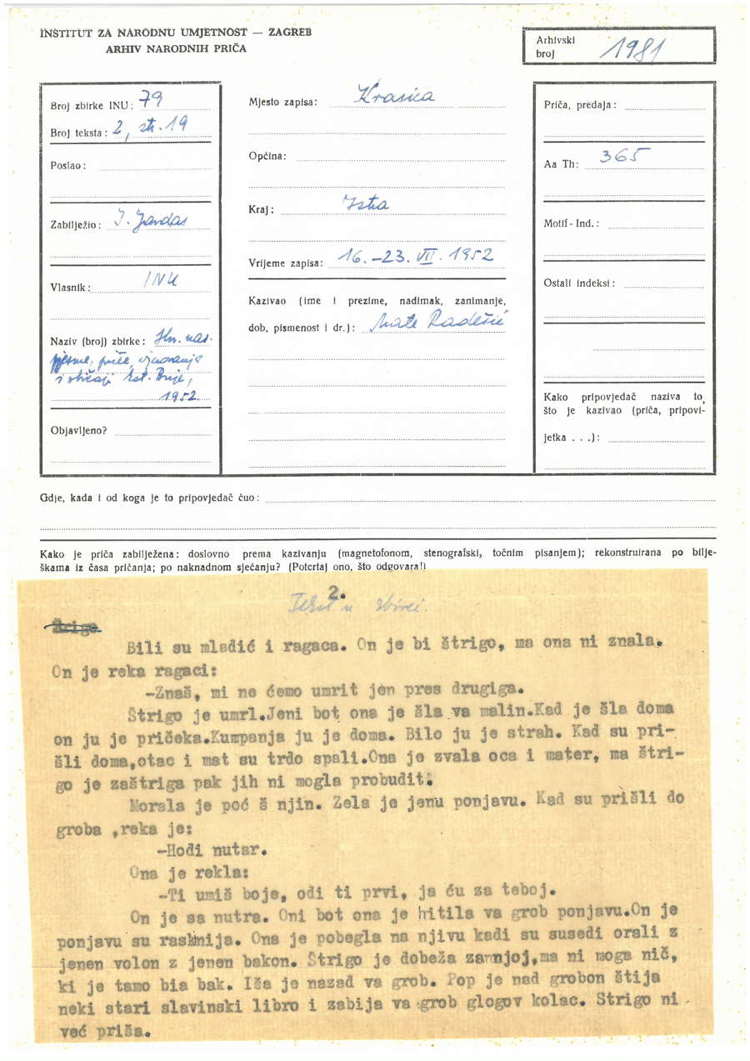 INSTITUT ZA NARODNU UMJETNOST — ZAGREB
ARHIV NARODNIH PRIČA
Arhivski
broj 1981
Broj zbirke INU: 79
Broj teksta: 2, str. 19
Poslao:
Zabilježio: I. Jardas
Vlasnik: INU
Naziv (broj) zbirke:
pjesme, priče, vjerovanja
i običaji
1952.
Objavljeno?
Mjesto zapisa: Krasica
Općina:
Kraj: Istra
Vrijeme zapisa: 16.–23. VII. 1952
Kazivao (ime i prezime, nadimak, zanimanje,
dob, pismenost i dr.): Mate Radešić
Priča, predaja:
Aa Th: 365
Motif - Ind.:
Ostali indeksi:
Kako pripovjedač naziva to,
što je kazivao (priča, pripovi-
jetka . . .):
Gdje, kada i od koga je to pripovjedač čuo:
Kako je priča zabilježena: doslovno prema kazivanju (magnetofonom, stenografski, točnim pisanjem); rekonstruirana po bilje-
škama iz časa pričanja; po naknadnom sjećanju? (Potcrtaj ono, što odgovara!)
2.
Tekst u zbirci.
Štrigo
Bili su mladić i ragaca. On je bi štrigo, ma ona ni znala.
On je reka ragaci:
-Znaš, mi ne ćemo umrit jen pres drugiga.
Strigo je umrl.Jeni bot ona je šla va malin.Kad je šla doma
on ju je pričeka.Kumpanja ju je doma. Bilo ju je strah. Kad su pri-
šli doma,otac i mat su trdo spali.Ona je zvala oca i mater, ma štri-
go je zaštriga pak jih ni mogla probudit.
Morala je poć š njin. Zela je jenu ponjavu. Kad su prišli do
groba ,reka je:
-Hodi nutar.
Ona je rekla:
-Ti umiš boje, odi ti prvi, ja ću za teboj.
On je sa nutra. Oni bot ona je hitila va grob ponjavu.On je
ponjavu su raskmija. Ona je pobegla na njivu kadi su susedi orali z
jenen volon z jenen bakon. Strigo je dobeža zamnjoj,ma ni moga nič,
ki je tamo bia bak. Iša je nazad va grob. Pop je nad grobon štija
neki stari slavinski libro i zabija va grob glogov kolac. Strigo ni
već priša.